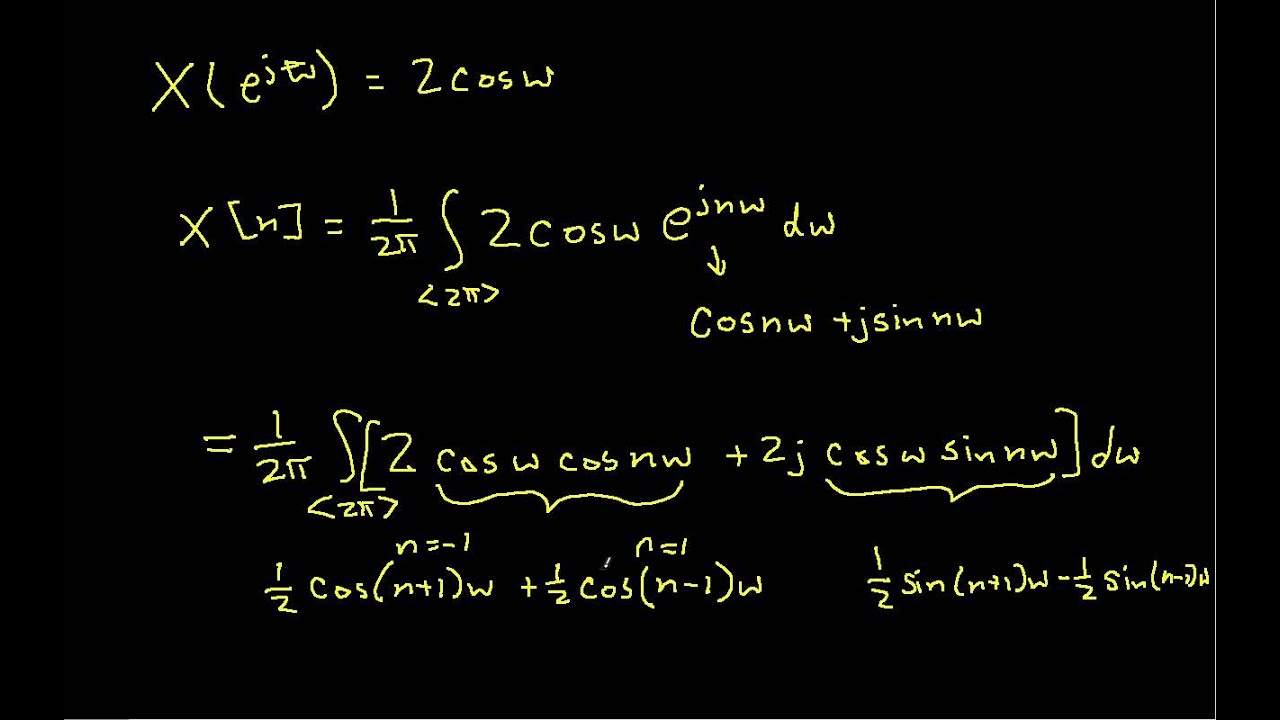 X(e^{jω}) = 2cosω
X[n] = 1/2π ∫<2π> 2cosω e^{jnω} dω
↓
cosnω + jsinnω
= 1/2π ∫<2π> [2 cosω cosnω + 2j cosω sinnω] dω
n=-1 n=1
1/2 cos(n+1)ω + 1/2 cos(n-1)ω 1/2 sin(n+1)ω - 1/2 sin(n-1)ω